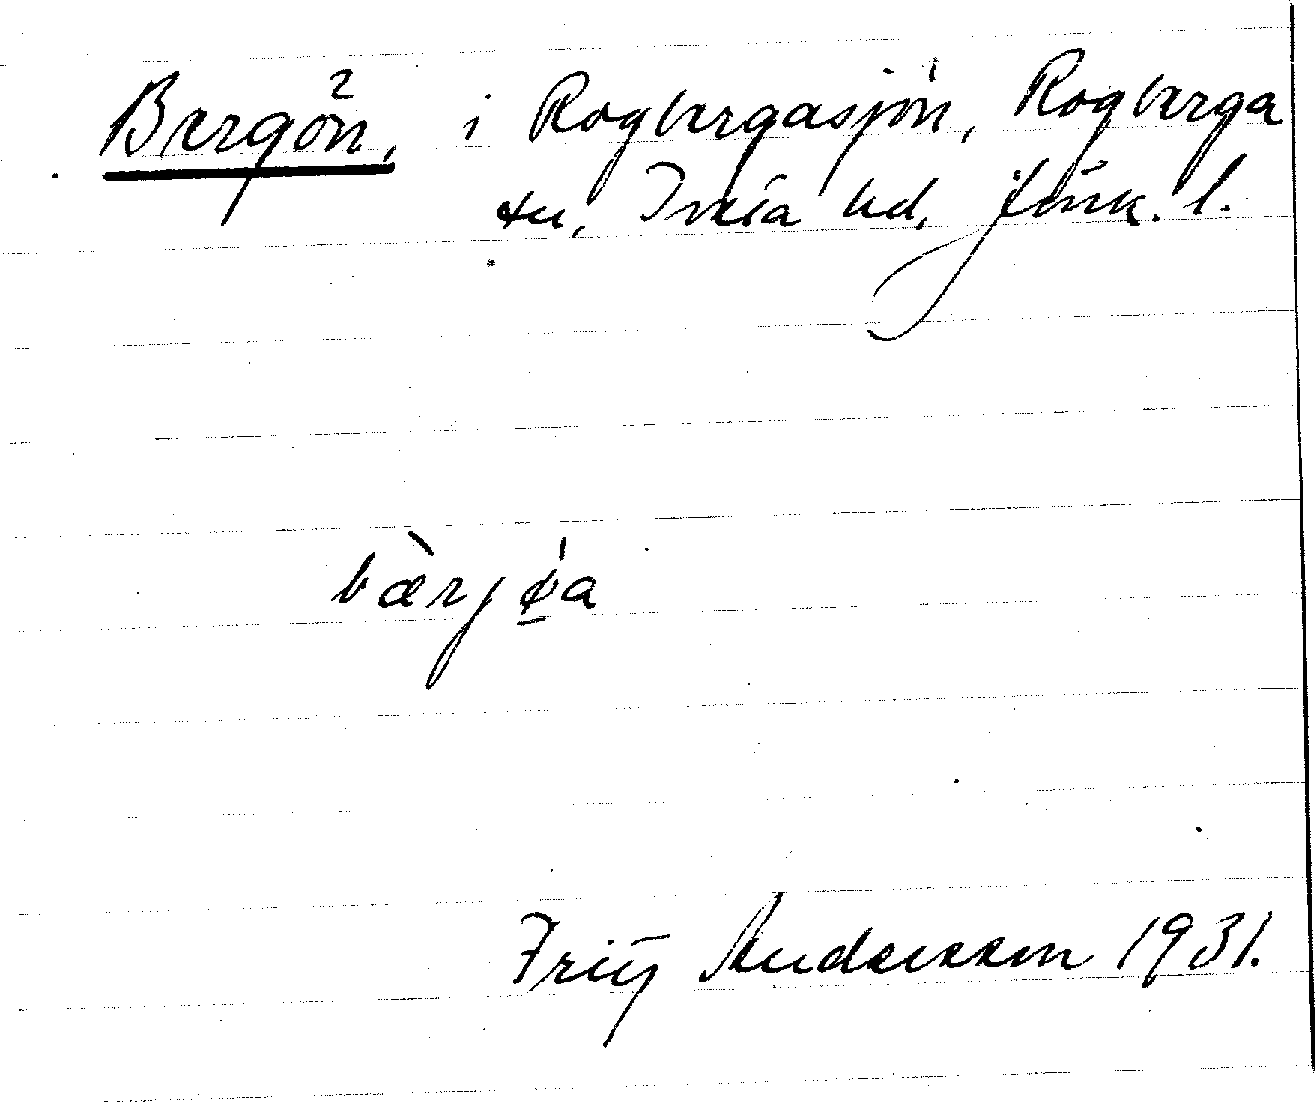 Bergön, i Rogbergasjön, Rogberga
sn, Tveta hd, Jönk. l.
bæ̀rjǿ̱a
Fritz Andersson 1931.